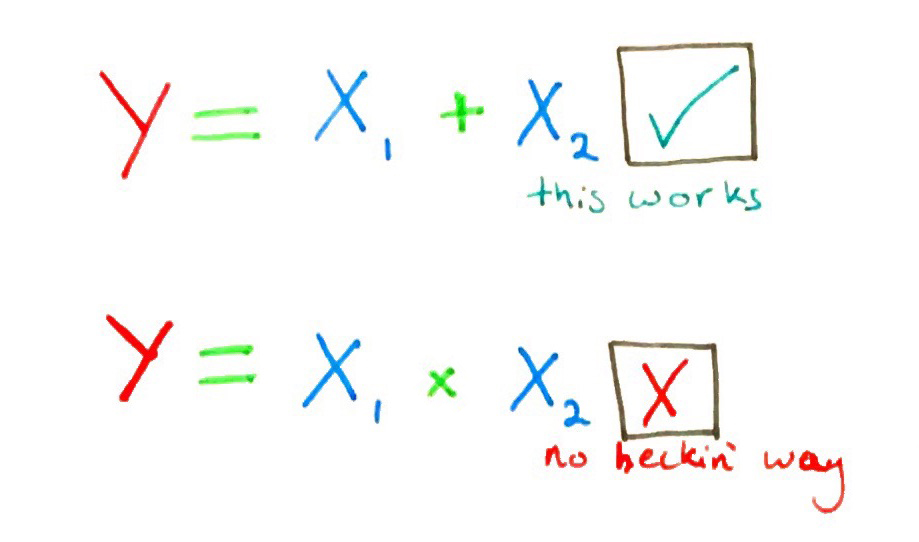 Y = X₁ + X₂ ✓
this works
Y = X₁ x X₂ X
no heckin' way